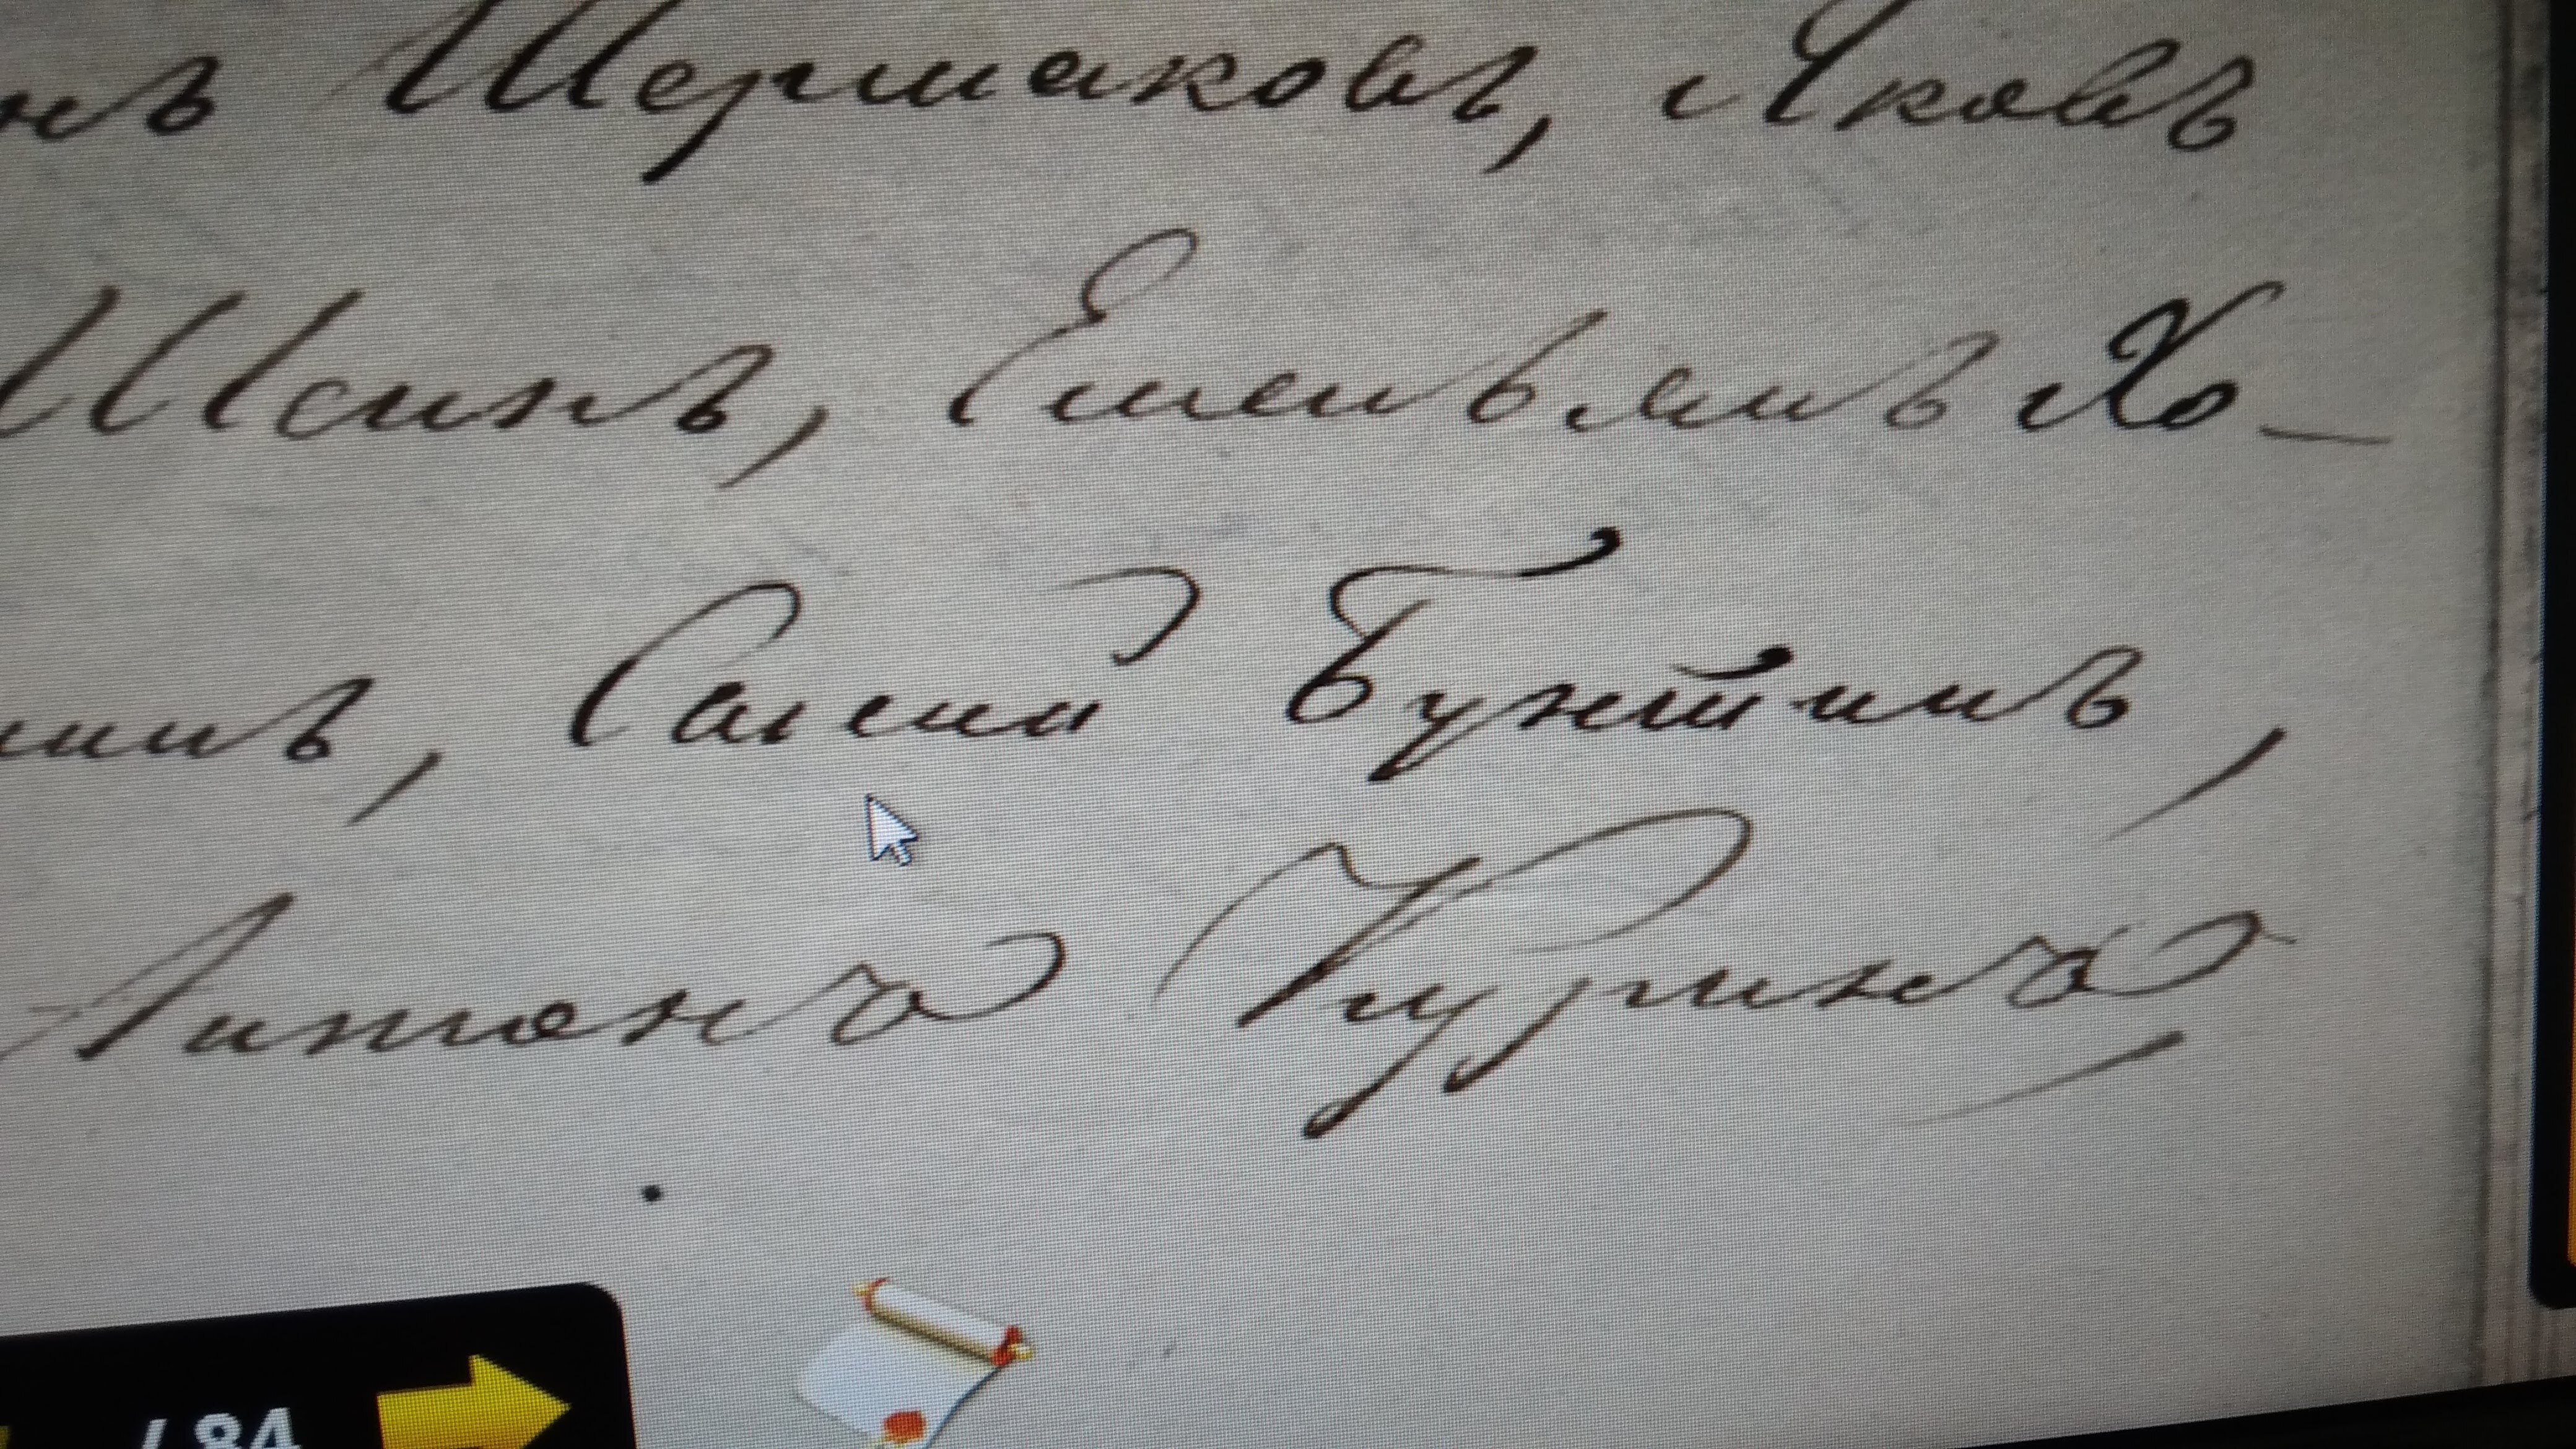 нъ Шершаковъ, Яковъ
Шсинъ, Емельянъ Хо-
шинъ, Савелій Бунтинъ,
Антонъ Чуринъ,
/ 84